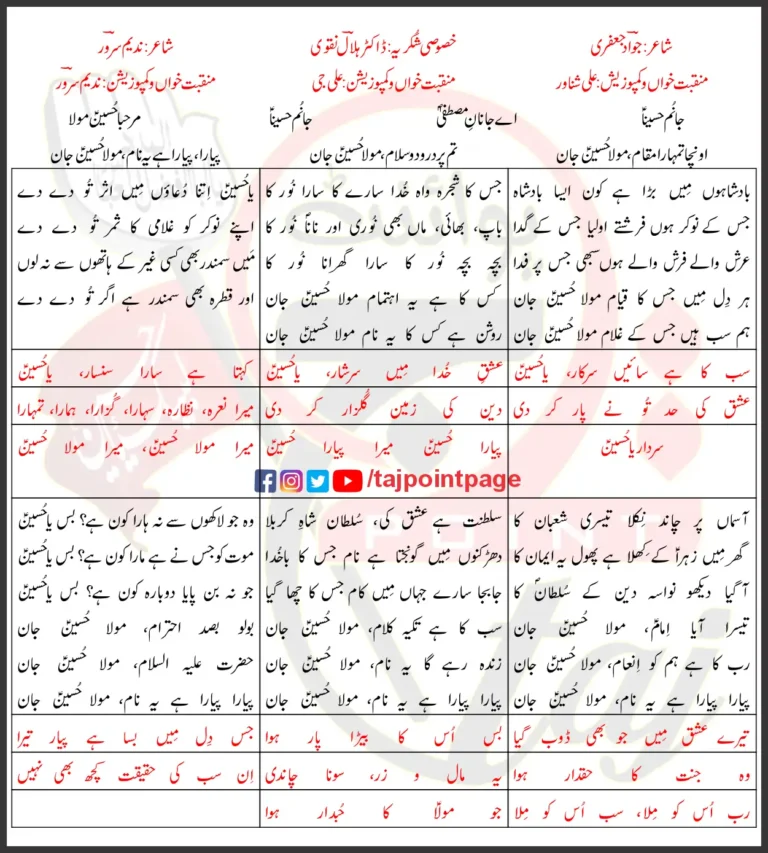 شاعر: جواد جعفری
خصوصی شکریہ: ڈاکٹر ہلالؔ نقوی
شاعر: ندیم سرورؔ
منقبت خواں و کمپوزیشن: علی شناور
منقبت خواں و کمپوزیشن: علی جی
منقبت خواں و کمپوزیشن: ندیم سرورؔ
جانُم حسیناؑ
اے جانانِ مصطفیٰؐ
جانُم حسیناؑ
مرحبا حُسینؑ مولا
اونچا تمہارا مقام، مولا حُسینؑ جان
تم پر درود و سلام، مولا حُسینؑ جان
پیارا، پیارا ہے یہ نام، مولا حُسینؑ جان
بادشاہوں مِیں بڑا ہے کون ایسا بادشاہ
جس کا شجرہ واہ خُدا سارے کا سارا نُور کا
یاحُسینؑ اِتنا دُعاؤں مِیں اثر تُو دے دے
جس کے نوکر ہوں فرشتے اولیا جس کے گدا
باپ، بھائی، ماں بھی نُوری اور ناناؐ نُور کا
اپنے نوکر کو غلامی کا ثمر تُو دے دے
عرش والے فرش والے ہوں سبھی جس پر فدا
بچہ بچہ نُور کا سارا گھرانا نُور کا
مَیں سمندر بھی کسی غیر کے ہاتھوں سے نہ لوں
ہر دِل مِیں جس کا قیام مولا حُسینؑ جان
کس کا ہے یہ اہتمام مولا حُسینؑ جان
اور قطرہ بھی سمندر ہے اگر تُو دے دے
ہم سب ہیں جس کے غلام مولا حُسینؑ جان
روشن ہے کس کا یہ نام مولا حُسینؑ جان
سب کا ہے سائیں سرکار، یاحُسینؑ
عشقِ خُدا مِیں سرشار، یاحُسینؑ
کہتا ہے سارا سنسار، یاحُسینؑ
عشق کی حد تُو نے پار کر دی
دین کی زمین گلزار کر دی
میرا نعرہ، نظارہ، سہارا، گُزارا، ہمارا، تمہارا
سردار یاحُسینؑ
پیارا حُسینؑ میرا پیارا حُسینؑ
میرا مولا حُسینؑ، میرا مولا حُسینؑ
/tajpointpage
آسماں پر چاند نِکلا تیسری شعبان کا
سلطنت ہے عشق کی، سُلطان شاہِ کربلا
وہ جو لاکھوں سے نہ ہارا کون ہے؟ بس یاحُسینؑ
گھر مِیں زہراؑ کے کِھلا ہے پھول یہ ایمان کا
دھڑکنوں مِیں گونجتا ہے نام جس کا باخُدا
موت کو جس نے ہے مارا کون ہے؟ بس یاحُسینؑ
آ گیا دیکھو نواسہ دین کے سُلطانؐ کا
جابجا سارے جہاں مِیں کام جس کا چھا گیا
جو نہ بن پایا دوبارہ کون ہے؟ بس یاحُسینؑ
تیسرا آیا اِمامؑ، مولا حُسینؑ جان
سب کا ہے تکیہ کلام، مولا حُسینؑ جان
بولو بصد احترام، مولا حُسینؑ جان
رب کا ہے ہم کو اِنعام، مولا حُسینؑ جان
زندہ رہے گا یہ نام، مولا حُسینؑ جان
حضرت علیہ السلام، مولا حُسینؑ جان
پیارا پیارا ہے یہ نام، مولا حُسینؑ جان
پیارا پیارا ہے یہ نام، مولا حُسینؑ جان
پیارا پیارا ہے یہ نام، مولا حُسینؑ جان
تیرے عشق مِیں جو بھی ڈوب گیا
بس اُس کا بیڑا پار ہوا
جس دِل مِیں بسا ہے پیار تیرا
وہ جنت کا حقدار ہوا
یہ مال و زر، سونا چاندی
اِن سب کی حقیقت کچھ بھی نہیں
رب اُس کو مِلا، سب اُس کو مِلا
جو مولاؑ کا حُبدار ہوا